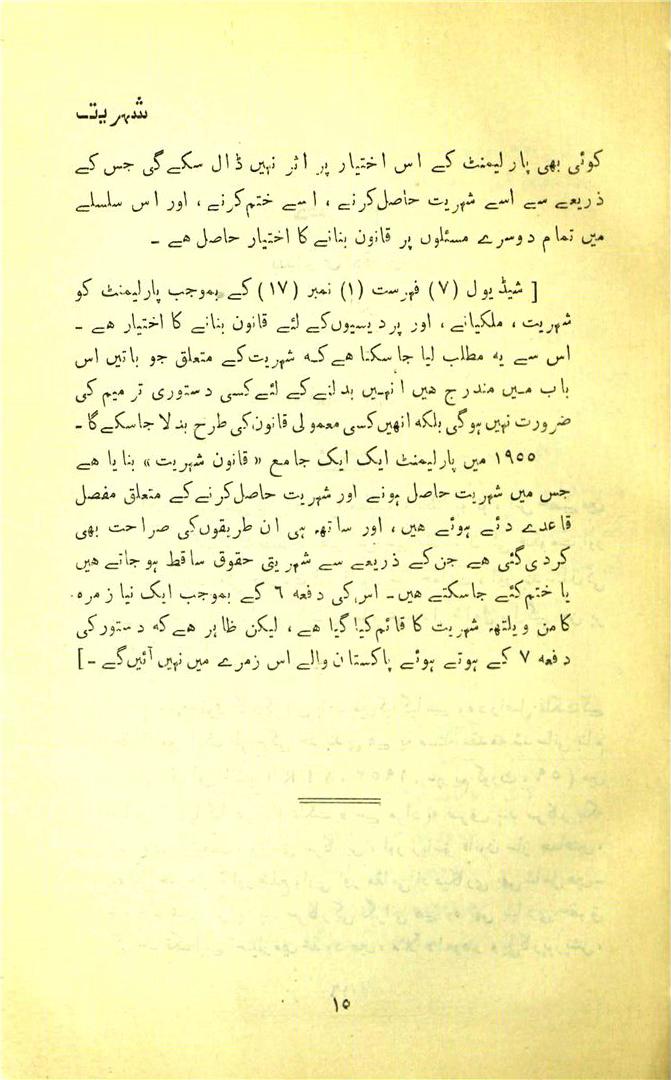 شہریت
کوئی بھی پارلیمنٹ کے اس اختیار پر اثر نہیں ڈال سکے گی جس کے
ذریعے سے اسے شہریت حاصل کرنے ، اسے ختم کرنے ، اور اس سلسلے
میں تمام دوسرے مسئلوں پر قانون بنانے کا اختیار حاصل ھے ۔
[ شیڈیول (۷) فہرست (۱) نمبر (۱۷) کے بموجب پارلیمنٹ کو
شہریت ، ملکیانے ، اور پردیسیوں کے لئے قانون بنانے کا اختیار ھے ۔
اس سے یہ مطلب لیا جا سکتا ھے کہ شہریت کے متعلق جو باتیں اس
باب میں مندرج ھیں انہیں بدلنے کے لئے کسی دستوری ترمیم کی
ضرورت نہیں ہوگی بلکہ انھیں کسی معمولی قانون کی طرح بدلا جا سکے گا ۔
۱۹۵۵ میں پارلیمنٹ ایک ایک جامع «قانون شہریت» بنایا ھے
جس میں شہریت حاصل ہونے اور شہریت حاصل کرنے کے متعلق مفصل
قاعدے دئے ہوئے ھیں ، اور ساتھ ہی ان طریقوں کی صراحت بھی
کردی گئی ھے جن کے ذریعے سے شہریتی حقوق ساقط ہو جاتے ھیں
یا ختم کئے جا سکتے ھیں ۔ اس کی دفعہ ٦ کے بموجب ایک نیا زمرہ
کامن ویلتھ شہریت کا قائم کیا گیا ھے ، لیکن ظاہر ھے کہ دستور کی
دفعہ ۷ کے ہوتے ہوئے پاکستان والے اس زمرے میں نہیں آئیں گے ۔ ]
۱۵